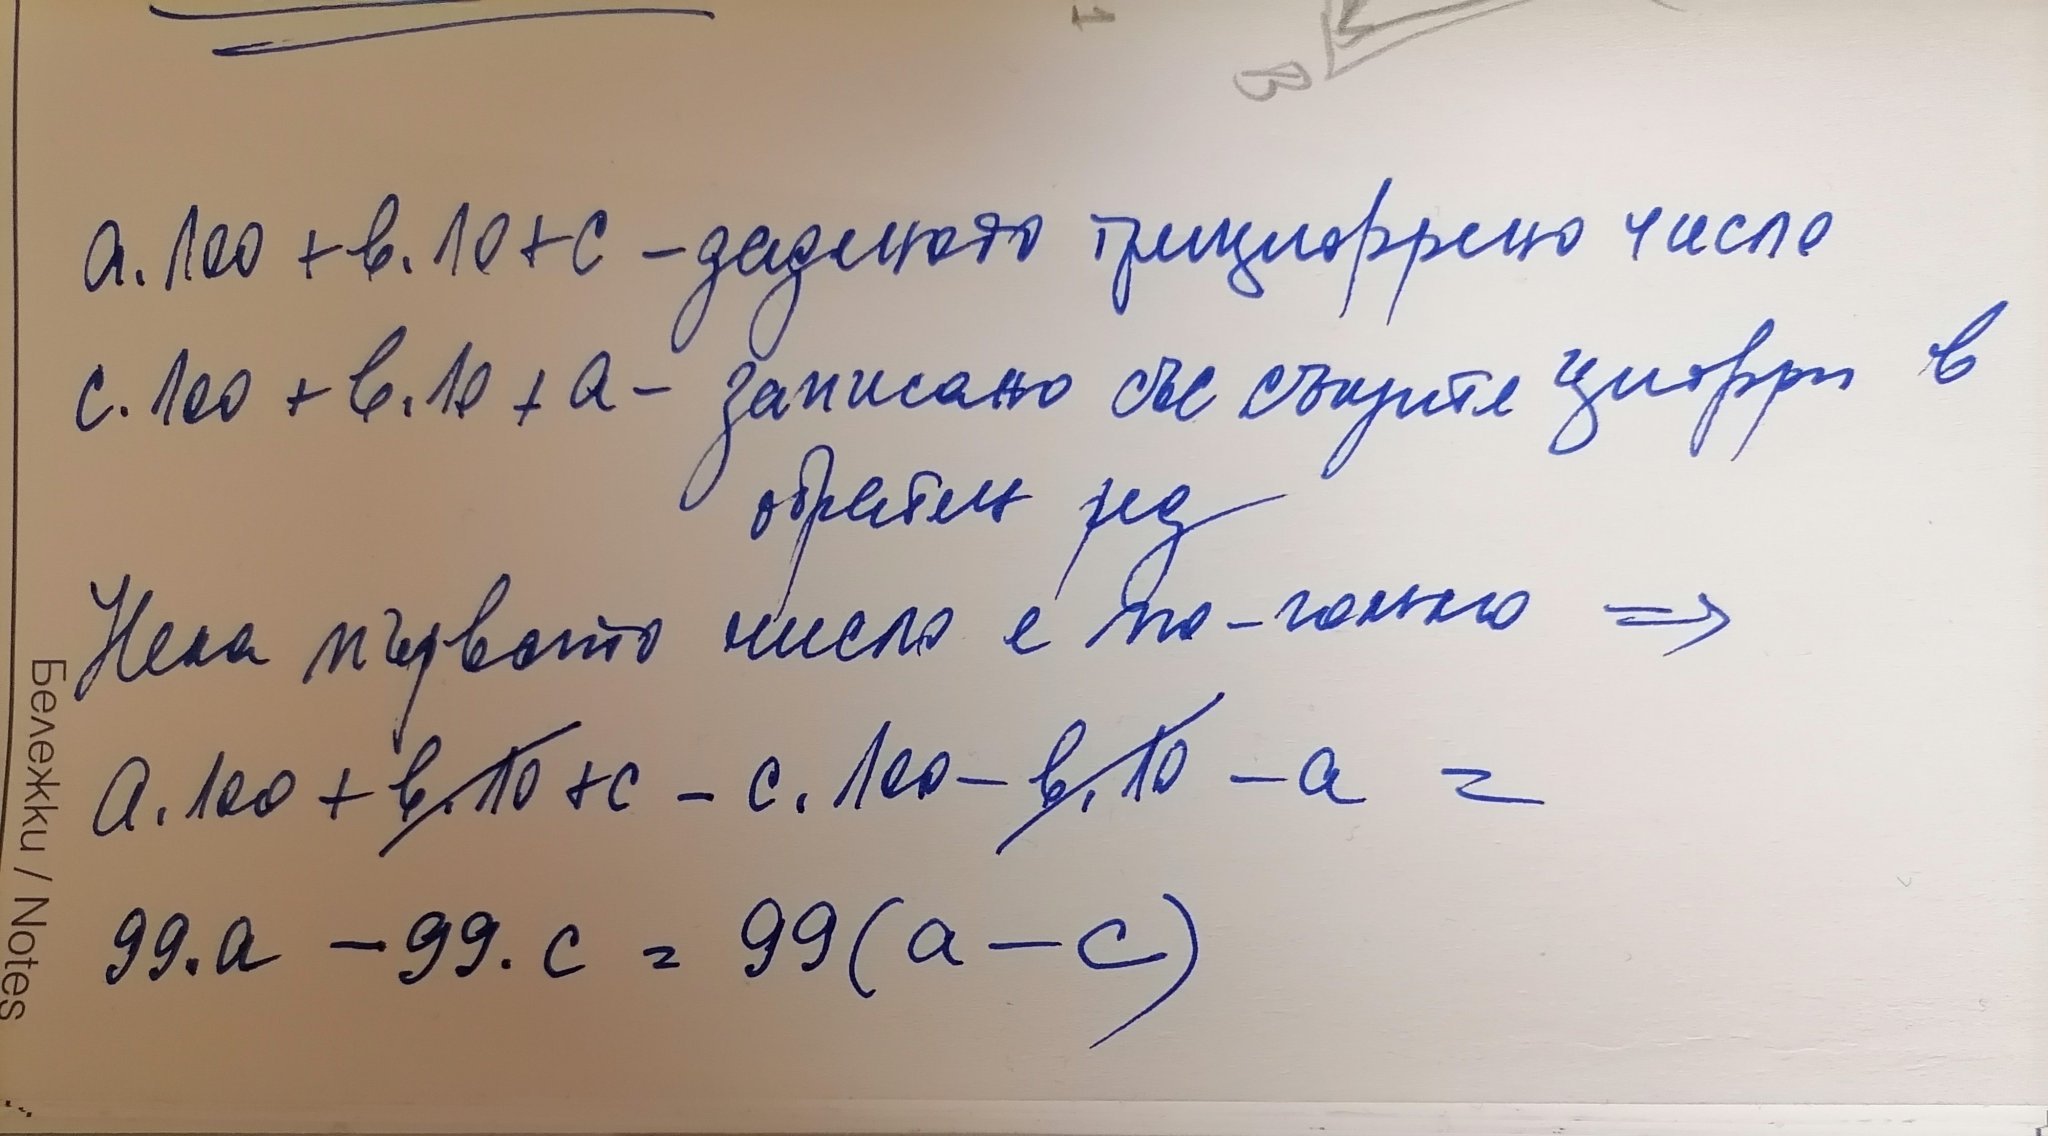 a.100 + в.10 + c – зададеното трицифрено число
c.100 + в.10 + a – записано със същите цифри в
обратен ред
Нека първото число е по-голямо ⇒
a.100 + в.10 + c – c.100 – в.10 – a =
99.a – 99.c = 99(a – c)
Бележки / Notes
1
B